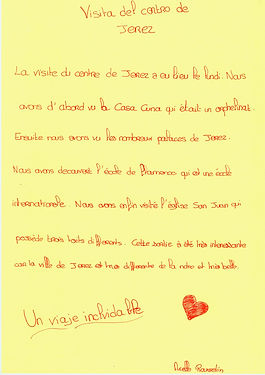 Visita del centro de
JEREZ
La visite du centre de Jerez a eu lieu le lundi. Nous
avons d'abord vu la Casa Cuna qui était un orphelinat.
Ensuite nous avons vu les nombreux palaces de Jerez.
Nous avons découvert l'école de Flamenco qui est une école
internationale. Nous avons enfin visité l'église San Juan qui
possède trois toits différents. Cette sortie a été très intéressante
car la ville de Jerez est très différente de la notre et très belle.
Un viaje inolvidable